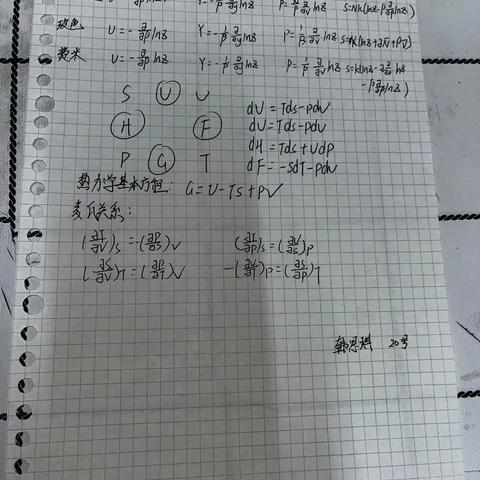 U=-∂/∂β lnZ Y=-1/β ∂/∂y lnZ P=1/β ∂/∂V lnZ S=Nk(lnZ-β∂/∂β lnZ)
玻色 U=-∂/∂β lnΞ Y=-1/β ∂/∂y lnΞ P=1/β ∂/∂V lnΞ
费米 U=-∂/∂β lnΞ Y=-1/β ∂/∂y lnΞ P=1/β ∂/∂V lnΞ
S U V
H F
P G T
dU=Tds-pdv
dU=Tds-pdv
dH=Tds+Vdp
dF=-SdT-pdv
热力学基本方程: G=U-TS+PV
麦氏关系:
(∂T/∂V)s=-(∂P/∂S)v (∂T/∂P)s=(∂V/∂S)p
(∂S/∂V)T=(∂P/∂T)v -(∂V/∂T)p=(∂S/∂P)T
20号